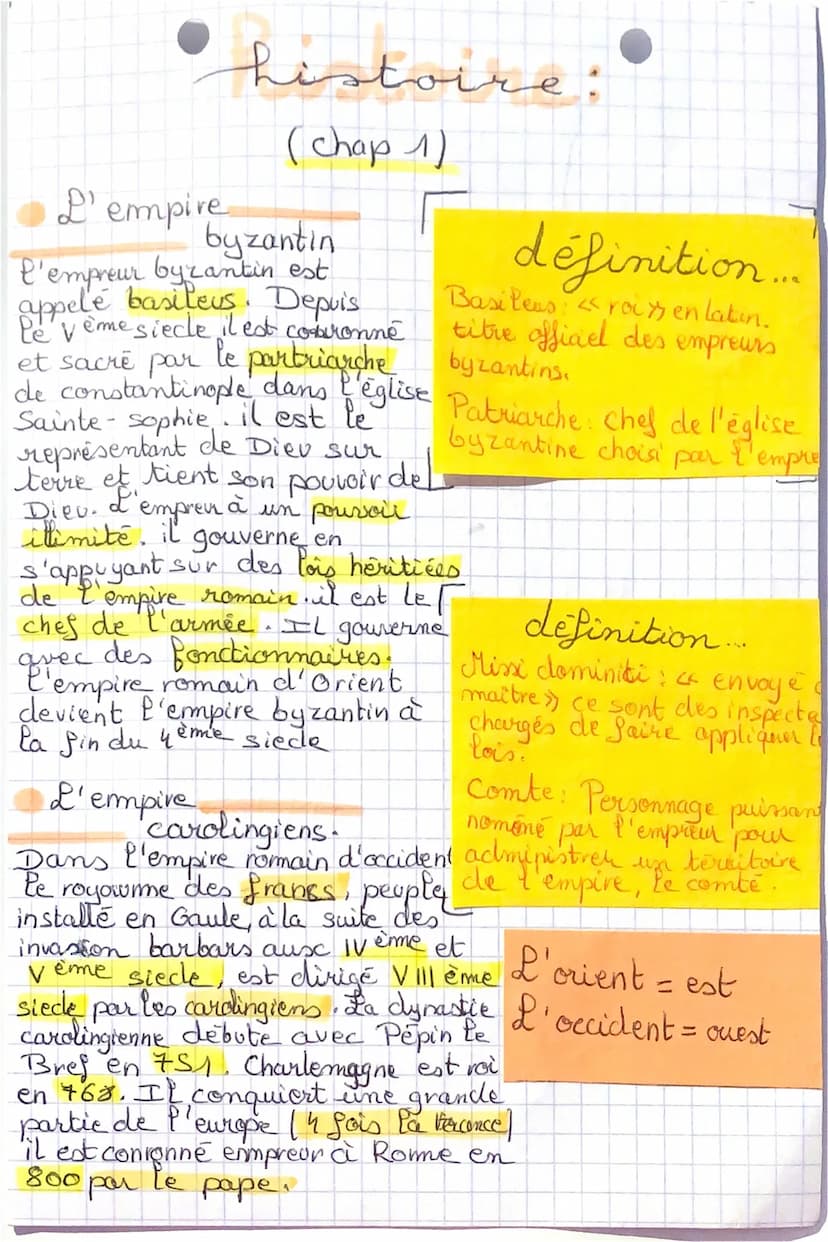 histoire :
(chap 1)
L'empire
byzantin
l'empreur byzantin est
appelé basileus. Depuis
le Vème siecle il est couronné
et sacré par le partriarche
de constantinople dans l'église
Sainte-sophie. il est le
représentant de Dieu sur
terre et tient son pouvoir de
Dieu. L'empreu à un pouvoir
illimité. il gouverne en
s'appuyant sur des lois héritiées
de l'empire romain. il est le
chef de l'armée. IL gouverne
avec des fonctionnaires.
l'empire romain d'Orient
devient l'empire byzantin à
la fin du 4ème siecle
définition...
Basileus : « roi » en latin.
titre officiel des empreurs
byzantins.
Patriarche : chef de l'église
byzantine choisi par l'empre
définition...
Missi dominiti : « envoyé d
maître » ce sont des inspecte
chargés de faire appliquer l
lois.
Comte : Personnage puissan
nomené par l'empreur pour
administrer un térritoire
de l'empire, le comté.
L'empire
carolingiens.
Dans l'empire romain d'occident
le royoumme des francs, peuple
installé en Gaule, à la suite des
invasion barbars aux IVème et
Vème siecle, est dirigé VIIIème
siecle par les carolingiens. La dynastie
carolingienne débute avec Pépin le
Bref en 751. Charlemagne est roi
en 768. IL conquiert une grande
partie de l'europe (4 fois la france)
il est conronné empreur à Rome en
800 par le pape.
L'orient = est
L'occident = ouest